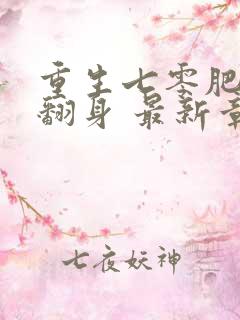 重生七零肥
翻身 最新章
七夜妖神